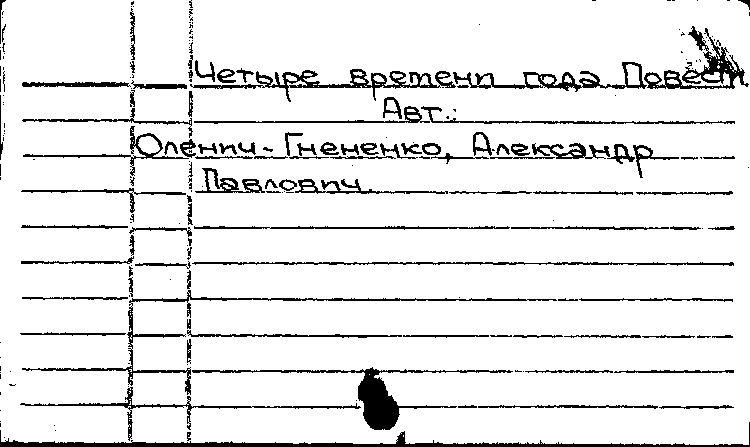 Четыре времени года Повести
Авт.:
Оленич-Гнененко, Александр
Павлович.